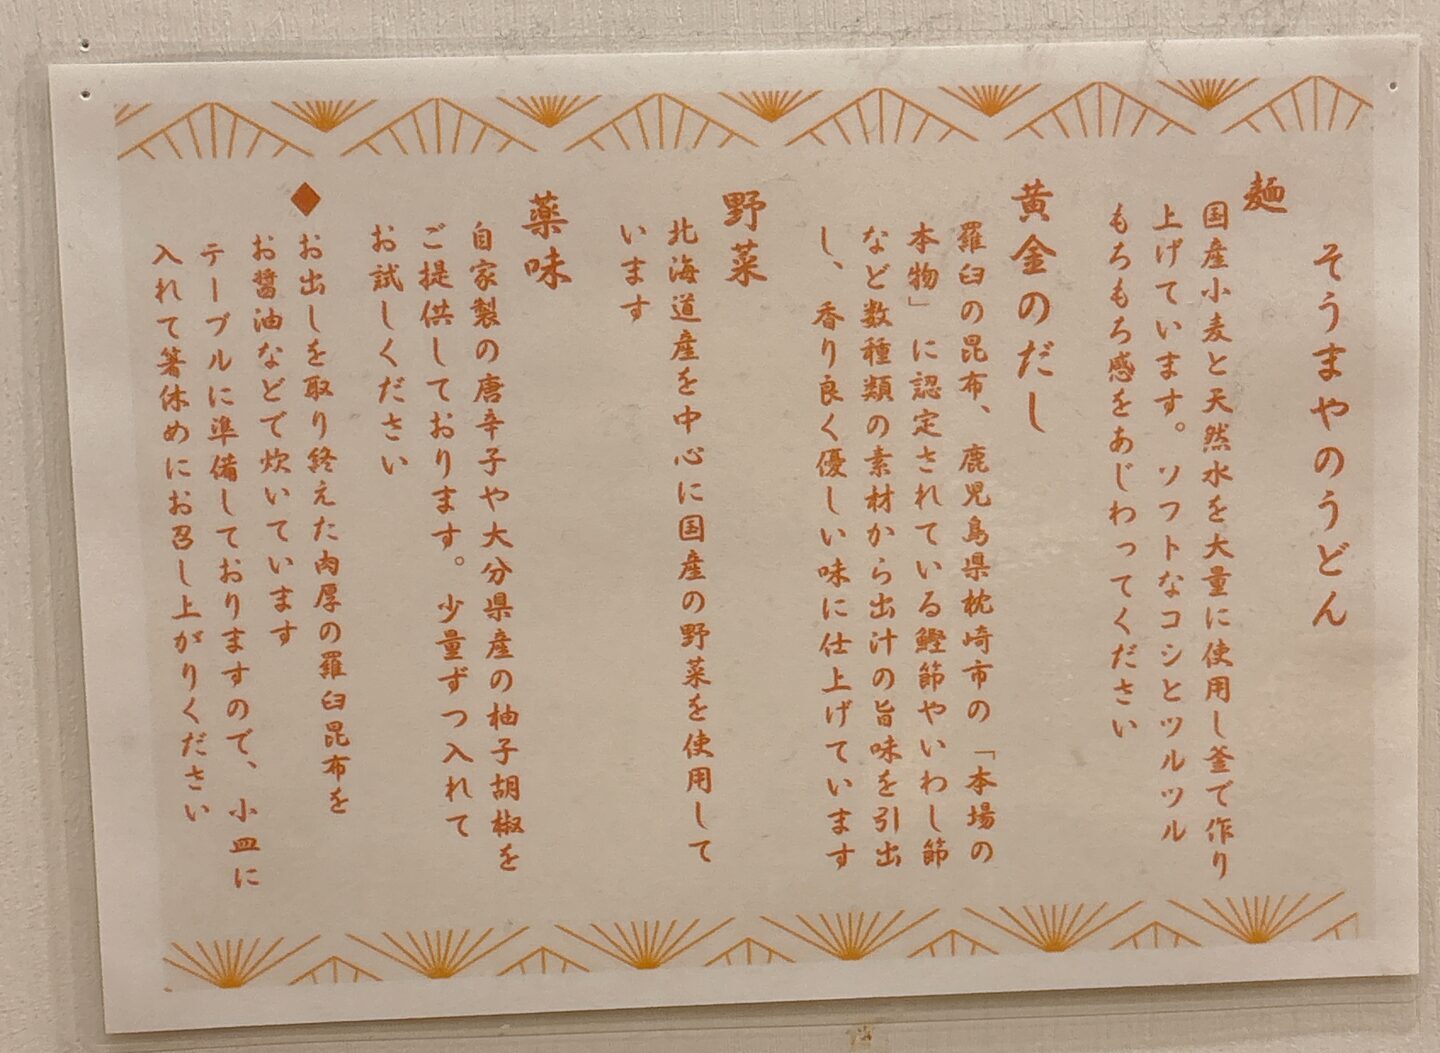 そうまやのうどん
麺
国産小麦と天然水を大量に使用し釜で作り
上げています。ソフトなコシとツルツル
もちもち感をあじわってください
黄金のだし
羅臼の昆布、鹿児島県枕崎市の「本場の
本物」に認定されている鰹節やいわし節
など数種類の素材から出汁の旨味を引出
し、香り良く優しい味に仕上げています
野菜
北海道産を中心に国産の野菜を使用して
います
薬味
自家製の唐辛子や大分県産の柚子胡椒を
ご提供しております。少量ずつ入れて
お試しください
◆
お出しを取り終えた肉厚の羅臼昆布を
お醤油などで炊いています
テーブルに準備しておりますので、小皿に
入れて箸休めにお召し上がりください